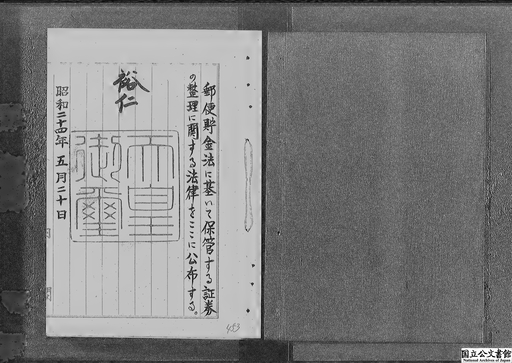 郵便貯金法に基いて保管する証券
の整理に関する法律をここに公布する。
裕仁
天皇
御璽
昭和二十四年五月二十日
453
国立公文書館
National Archives of Japan